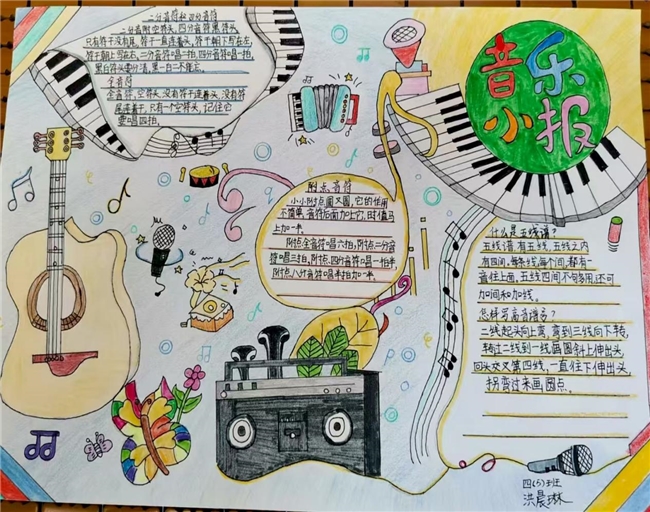 音乐
小报
二分音符和四分音符
二分音符空符头,四分音符黑符头,
只有符干没有尾,符干一直连着头,符干朝下写在左,
符干朝上写在右,二分音符唱二拍,四分音符唱一拍,
黑白符头要分清,黑一白二不能忘。
全音符
全音符,空符头,没有符干连着头,没有符
尾连着干,只有一个空符头,记住它
要唱四拍。
附点音符
小小附点圆又圆,它的作用
不简单,音符后面加上它,时值马
上加一半。
附点全音符唱六拍,附点二分音
符唱三拍,附点四分音符唱一拍半
附点八分音符唱半拍加一半。
什么是五线谱?
五线谱有五线,五线之内
有四间,每条线,每个间,都有一
音住上面,五线四间不够用,还可
加间和加线。
怎样写高音谱号?
二线起头向上弯,弯到三线向下转,
转过二线到一线,画圆斜上伸出头,
回头交叉第四线,一直往下伸出头
拐弯过来画圆点。
四(5)班
洪晨琳